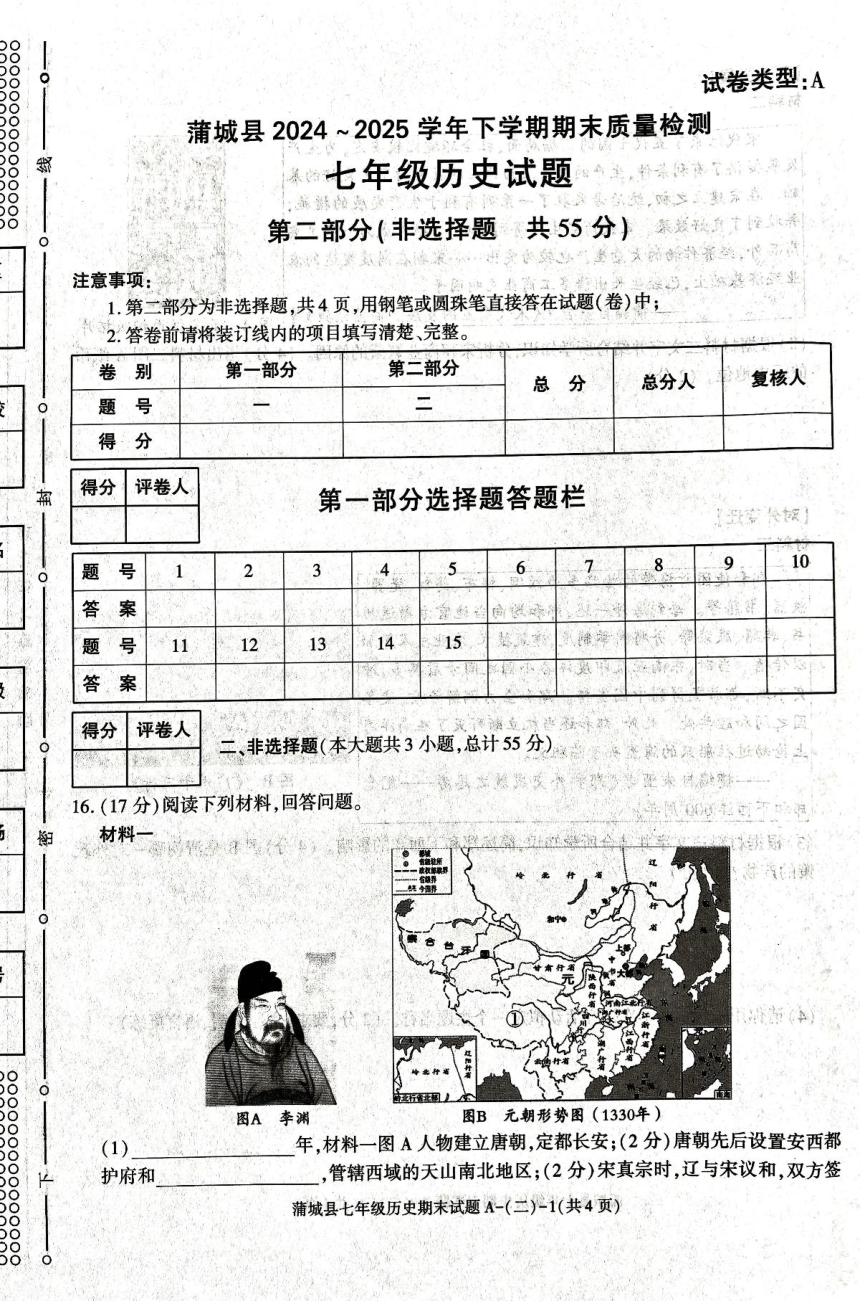 试卷类型:A
蒲城县 2024 ~ 2025 学年下学期期末质量检测
七年级历史试题
第二部分(非选择题 共 55 分)
注意事项:
1. 第二部分为非选择题,共 4 页,用钢笔或圆珠笔直接答在试题(卷)中;
2. 答卷前请将装订线内的项目填写清楚、完整。
卷 别 第一部分 第二部分 总 分 总分人 复核人
题 号 一 二
得 分
得分 评卷人
第一部分选择题答题栏
题 号 1 2 3 4 5 6 7 8 9 10
答 案
题 号 11 12 13 14 15
答 案
得分 评卷人
二、非选择题(本大题共 3 小题,总计 55 分)
16. (17 分)阅读下列材料,回答问题。
材料一
都城
省级驻所
政权部族界
省级界
今国界
岭北行省
辽阳行省
和宁
上都
察合台汗国
中书省
大都
甘肃行省
元
陕西行省
河南江北行省
①
四川行省
江浙行省
湖广行省
江西行省
云南行省
岭北行省
辽阳行省
岭北行省北部
南海
图A 李渊
图B 元朝形势图(1330年)
(1) 年,材料一图 A 人物建立唐朝,定都长安;(2 分)唐朝先后设置安西都
护府和 ,管辖西域的天山南北地区;(2 分)宋真宗时,辽与宋议和,双方签
蒲城县七年级历史期末试题 A-(二)-1(共 4 页)
线
封
密
下